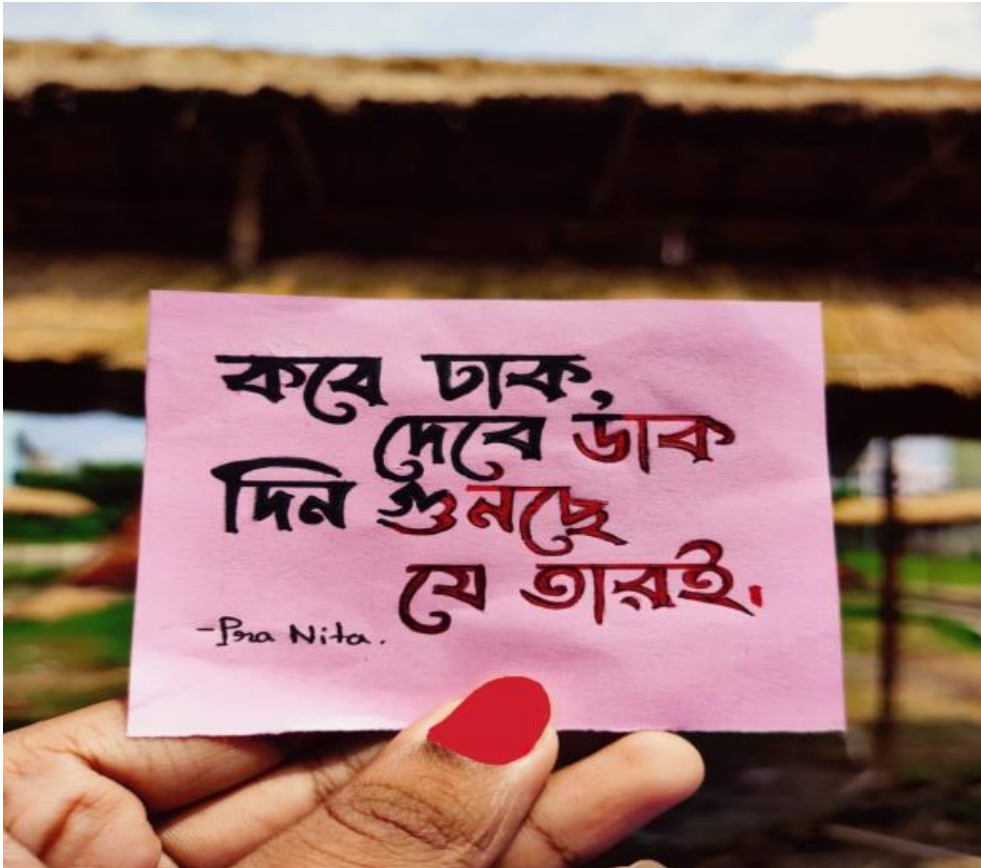 কবে ঢাক,
দেবে ডাক
দিন গুনছে
যে তারই.
-Pra Nita.